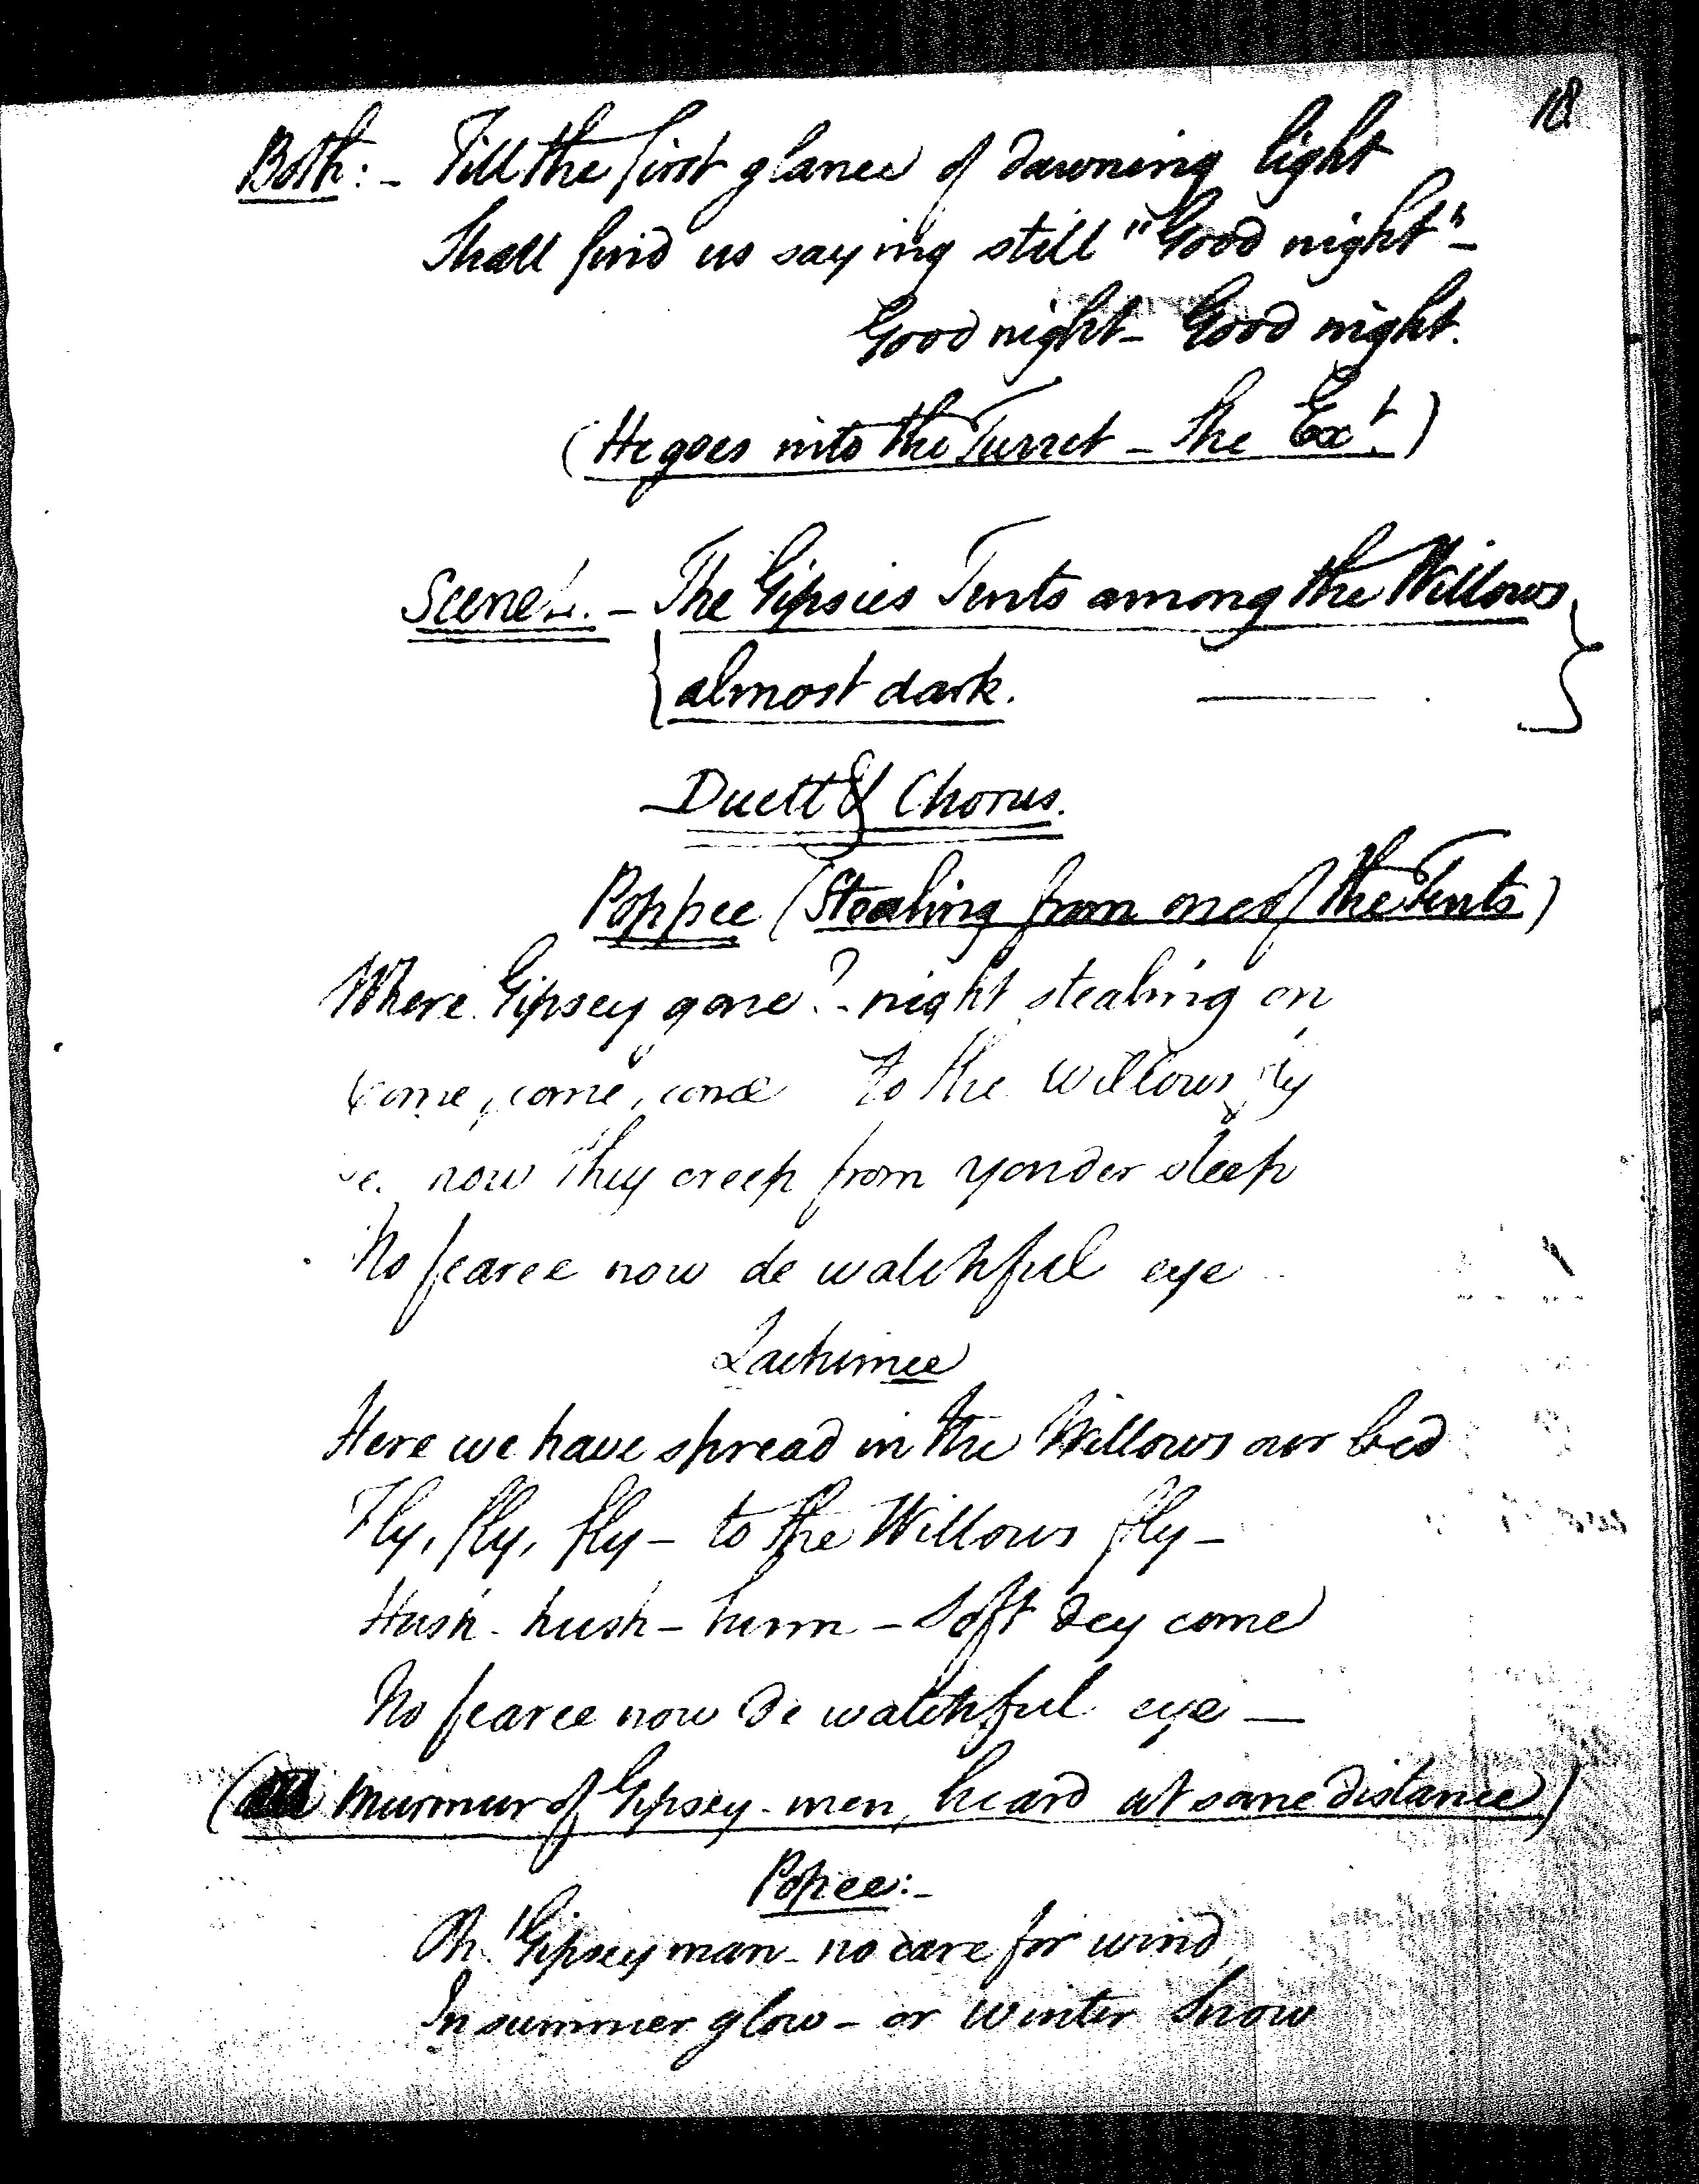 18
Both:- Till the first glance of dawning light
Shall find us saying still "Good night"-
Good night - Good night.
(He goes into the Turret - She Ext.)
Scene - The Gipsies Tents among the Willows
almost dark.
Duett & Chorus.
Poppee (Stealing from one of the Tents)
Where Gipsey gone? - night stealing on
Come, come, come to the Willows
now they creep from yonder steep
No fearee now de watchful eye
Lachimee
Here we have spread in the Willows our bed
Fly, fly, fly - to the Willows fly -
Hush - hush - hum - Soft dey come
No fearee now de watchful eye —
( Murmur of Gipsey-men, heard at some distance)
Popee:-
Oh! Gipsey man - no care for wind,
In summer glow - or winter snow